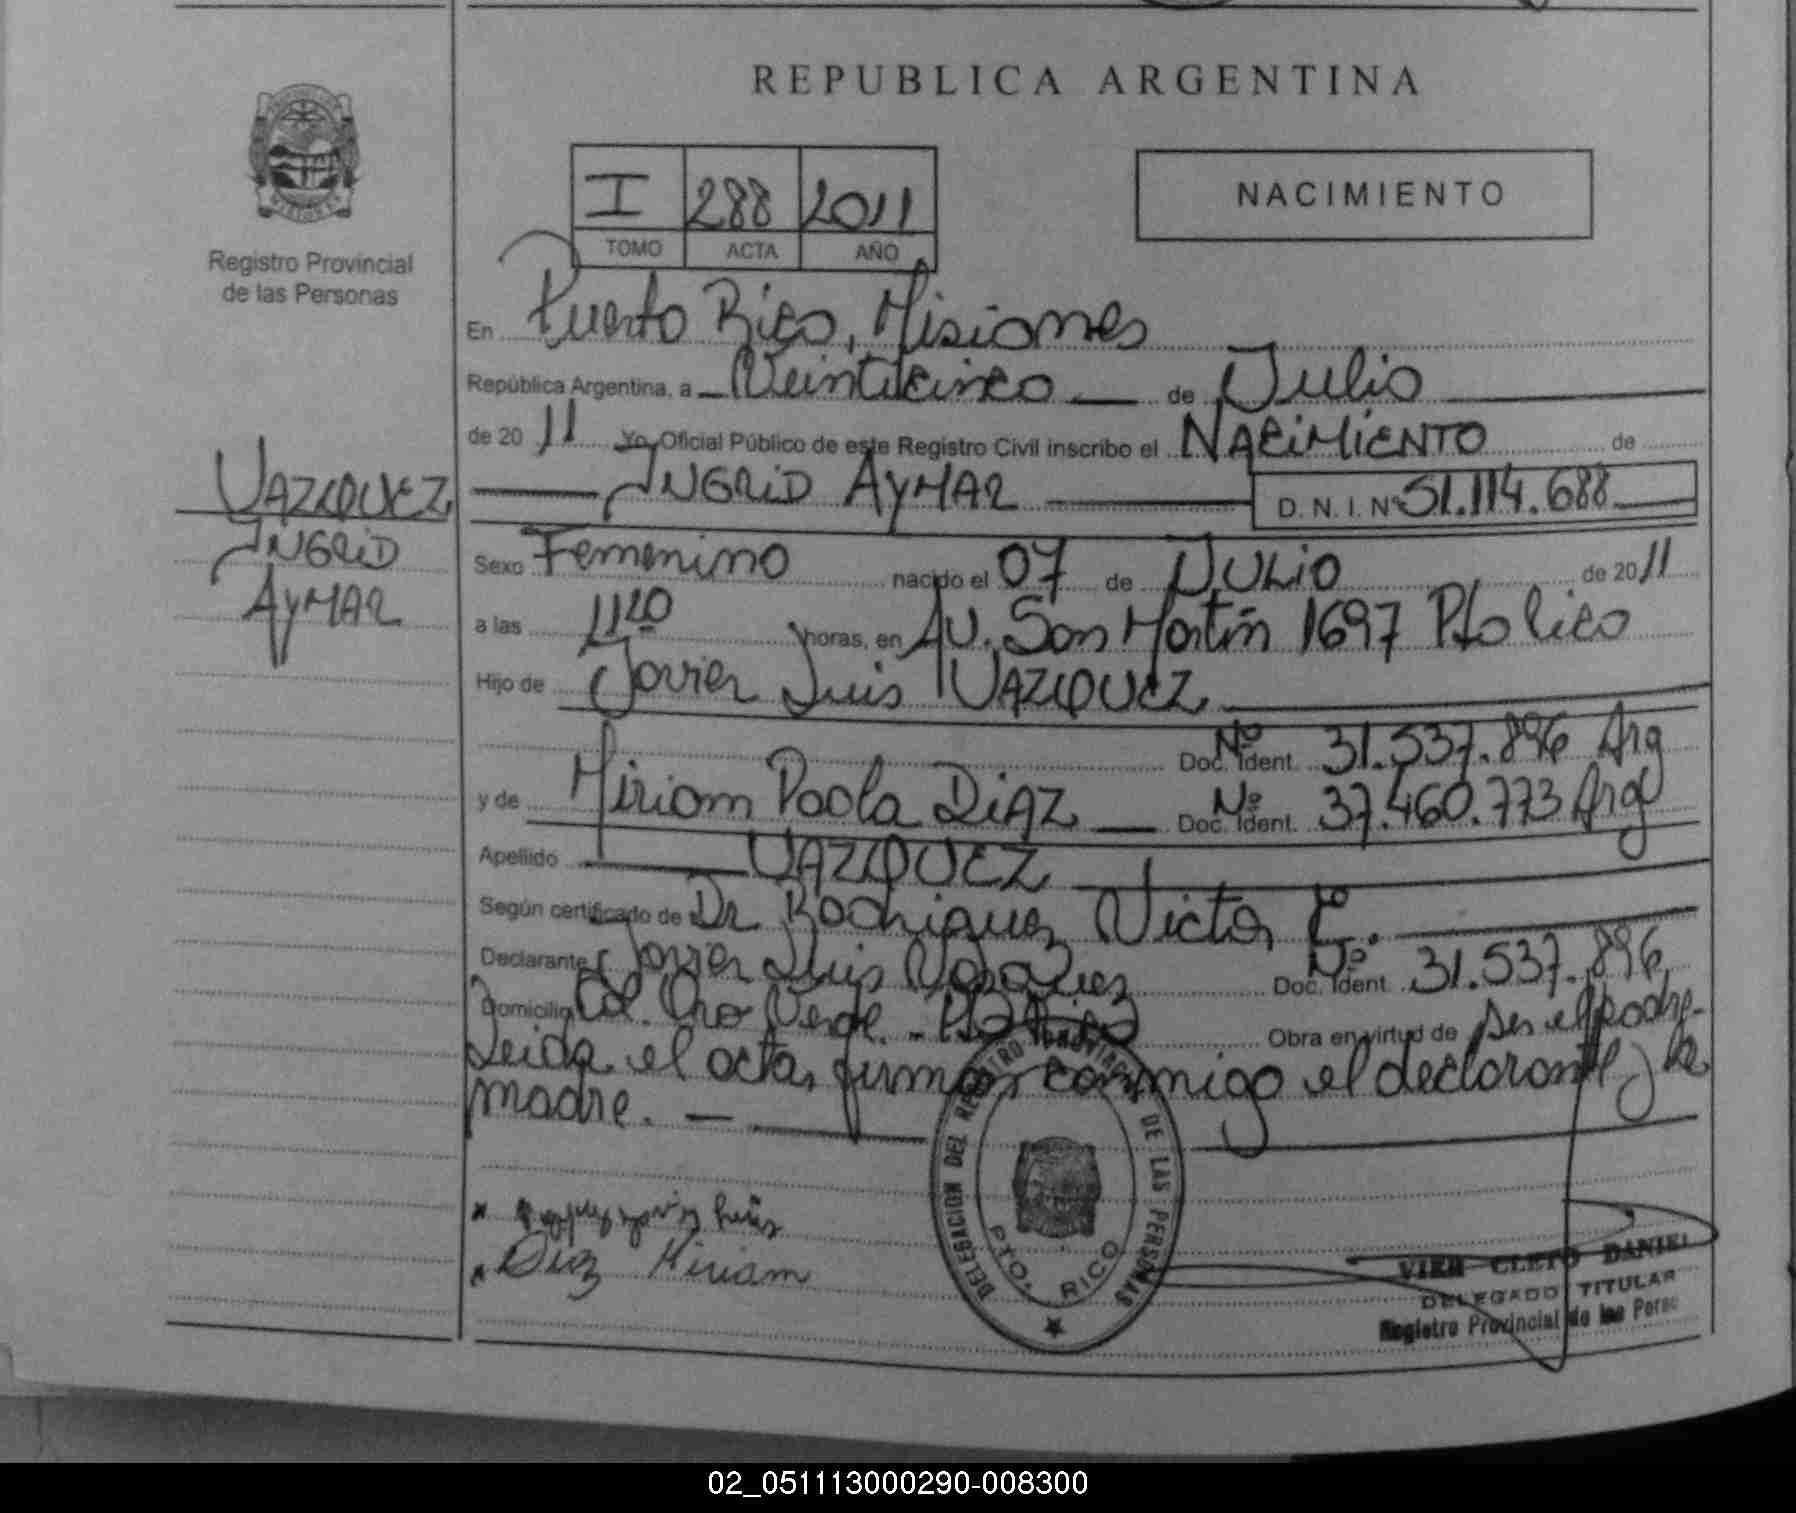 REPUBLICA ARGENTINA
Registro Provincial
de las Personas
I 288 2011
TOMO ACTA AÑO
NACIMIENTO
En Puerto Rico, Misiones
República Argentina, a Veinticinco de Julio
de 20 11 Yo, Oficial Público de este Registro Civil inscribo el NACIMIENTO de
INGRID AYMAR D. N. I. Nº 51.114.688
VAZQUEZ
INGRID
AYMAR
Sexo Femenino nacido el 07 de JULIO de 20 11
a las 1120 horas, en AV. San Martín 1697 Pto Rico
Hijo de Javier Luis VAZQUEZ
Doc. Ident. Nº 31.537.896 Arg
y de Miriam Paola DIAZ Doc. Ident. Nº 37.460.773 Arg
Apellido VAZQUEZ
Según certificado de Dr Rodriguez Victor
Declarante Javier Luis Vazquez Doc. Ident. Nº 31.537.896
Domicilio Col. Oro Verde - Pto Rico Obra en virtud de ser el padre-
Leida el acta, firman conmigo el declarante y la
madre. -
Diaz Miriam
DELEGACION DEL REGISTRO PROVINCIAL DE LAS PERSONAS
PTO. RICO
VIER CLETO DANIEL
DELEGADO TITULAR
Registro Provincial de las Perso
02_051113000290-008300